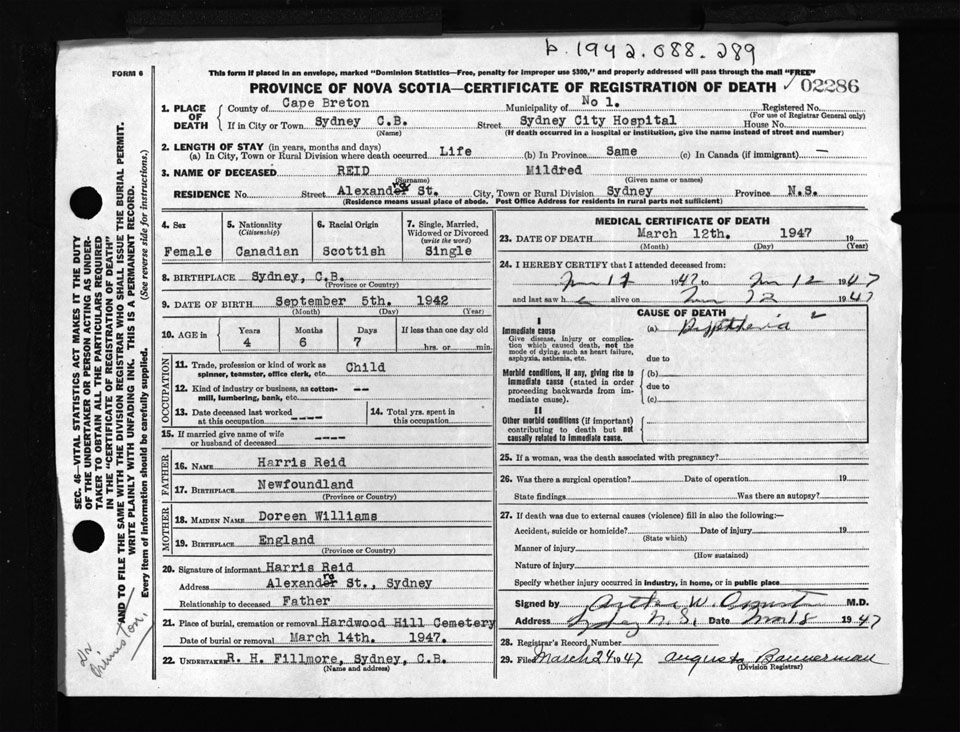 b. 1942.088.289
FORM 6
This form if placed in an envelope, marked "Dominion Statistics—Free, penalty for improper use $300," and properly addressed will pass through the mail "FREE"
PROVINCE OF NOVA SCOTIA—CERTIFICATE OF REGISTRATION OF DEATH 02286
1. PLACE OF DEATH
County of Cape Breton Municipality of No 1. Registered No.
(For use of Registrar General only)
If in City or Town Sydney C.B. Street Sydney City Hospital House No.
(Name) (If death occurred in a hospital or institution, give the name instead of street and number)
2. LENGTH OF STAY (in years, months and days)
(a) In City, Town or Rural Division where death occurred Life (b) In Province Same (c) In Canada (if immigrant) —
3. NAME OF DECEASED REID Mildred
(Surname) (Given name or names)
RESIDENCE No. Street Alexandra St. City, Town or Rural Division Sydney Province N.S.
(Residence means usual place of abode. Post Office Address for residents in rural parts not sufficient)
4. Sex
Female
5. Nationality
(Citizenship)
Canadian
6. Racial Origin
Scottish
7. Single, Married, Widowed or Divorced
(write the word)
Single
8. BIRTHPLACE Sydney, C.B.
(Province or Country)
9. DATE OF BIRTH September 5th. 1942
(Month) (Day) (Year)
10. AGE in
Years Months Days If less than one day old
4 6 7 hrs. or min.
OCCUPATION
11. Trade, profession or kind of work as spinner, teamster, office clerk, etc. Child
12. Kind of industry or business, as cotton-mill, lumbering, bank, etc. --
13. Date deceased last worked at this occupation ----
14. Total yrs. spent in this occupation
15. If married give name of wife or husband of deceased ----
FATHER
16. NAME Harris Reid
17. BIRTHPLACE Newfoundland
(Province or Country)
MOTHER
18. MAIDEN NAME Doreen Williams
19. BIRTHPLACE England
(Province or Country)
20. Signature of informant Harris Reid
Address Alexandra St., Sydney
Relationship to deceased Father
21. Place of burial, cremation or removal Hardwood Hill Cemetery
Date of burial or removal March 14th. 1947.
22. UNDERTAKER R. H. Fillmore, Sydney, C.B.
(Name and address)
MEDICAL CERTIFICATE OF DEATH
23. DATE OF DEATH March 12th. 1947 19
(Month) (Day) (Year)
24. I HEREBY CERTIFY that I attended deceased from:
1947 to 12 1947
and last saw h alive on 12 1947
CAUSE OF DEATH
I
Immediate cause
Give disease, injury or complication which caused death, not the mode of dying, such as heart failure, asphyxia, asthenia, etc.
(a) Diphtheria
due to
Morbid conditions, if any, giving rise to immediate cause (stated in order proceeding backwards from immediate cause).
(b)
due to
(c)
II
Other morbid conditions (if important) contributing to death but not causally related to immediate cause.
25. If a woman, was the death associated with pregnancy?
26. Was there a surgical operation? Date of operation 19
State findings Was there an autopsy?
27. If death was due to external causes (violence) fill in also the following:—
Accident, suicide or homicide? Date of injury 19
(State which)
Manner of injury
(How sustained)
Nature of injury
Specify whether injury occurred in industry, in home, or in public place
Signed by Arthur W. M.D.
Address Sydney N.S. Date 1947
28. Registrar's Record Number
29. Filed March 24 1947 Augusta Bannerman
(Division Registrar)
SEC. 46—VITAL STATISTICS ACT MAKES IT THE DUTY
OF THE UNDERTAKER OR PERSON ACTING AS UNDER-
TAKER TO OBTAIN ALL THE PARTICULARS REQUIRED
IN THE "CERTIFICATE OF REGISTRATION OF DEATH"
AND TO FILE THE SAME WITH THE DIVISION REGISTRAR WHO SHALL ISSUE THE BURIAL PERMIT.
WRITE PLAINLY WITH UNFADING INK. THIS IS A PERMANENT RECORD.
Every item of information should be carefully supplied. (See reverse side for instructions.)
Dr